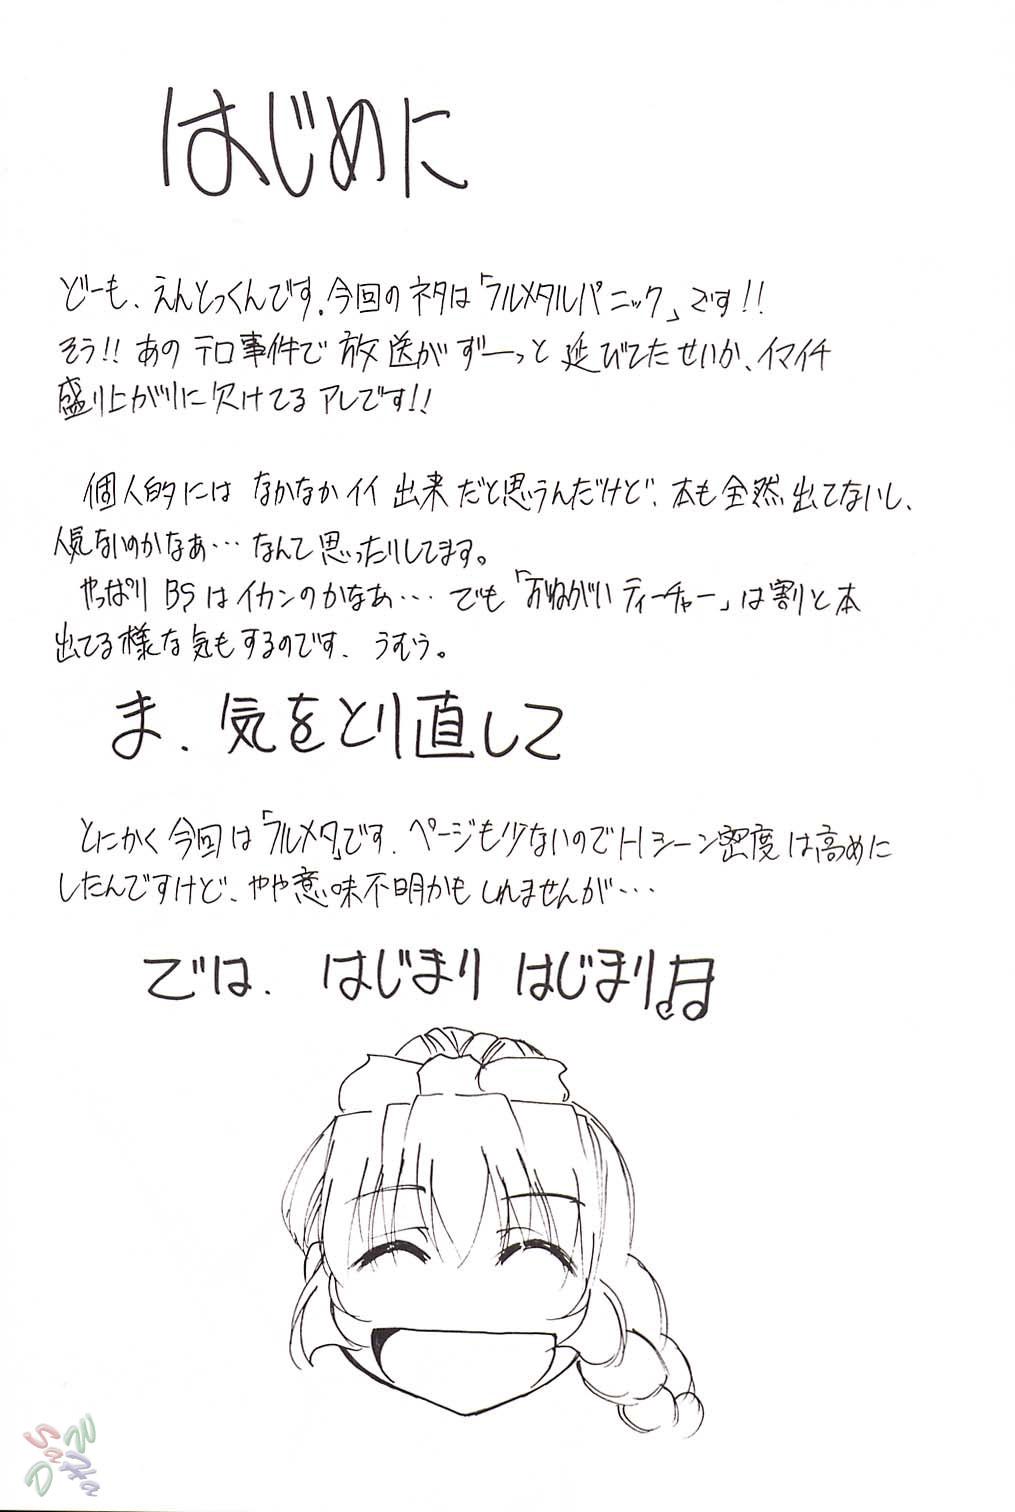 はじめに
どーも、えんとっくんです。今回のネタは「フルメタルパニック」です!!
そう!! あのテロ事件で放送がずーっと延びてたせいか、イマイチ
盛り上がりに欠けてるアレです!!
個人的にはなかなかイイ出来だと思うんだけど、本も全然出てないし、
人気ないのかなあ…なんて思ったりしてます。
やっぱりBSはイカンのかなあ…でも「おねがいティーチャー」は割と本
出てる様な気もするのです、うむう。
ま、気をとり直して
とにかく今回は「フルメタ」です、ページも少ないのでHシーン密度は高めに
したんですけど、やや意味不明かもしれませんが…
では、はじまりはじまり♫
SaWHaD